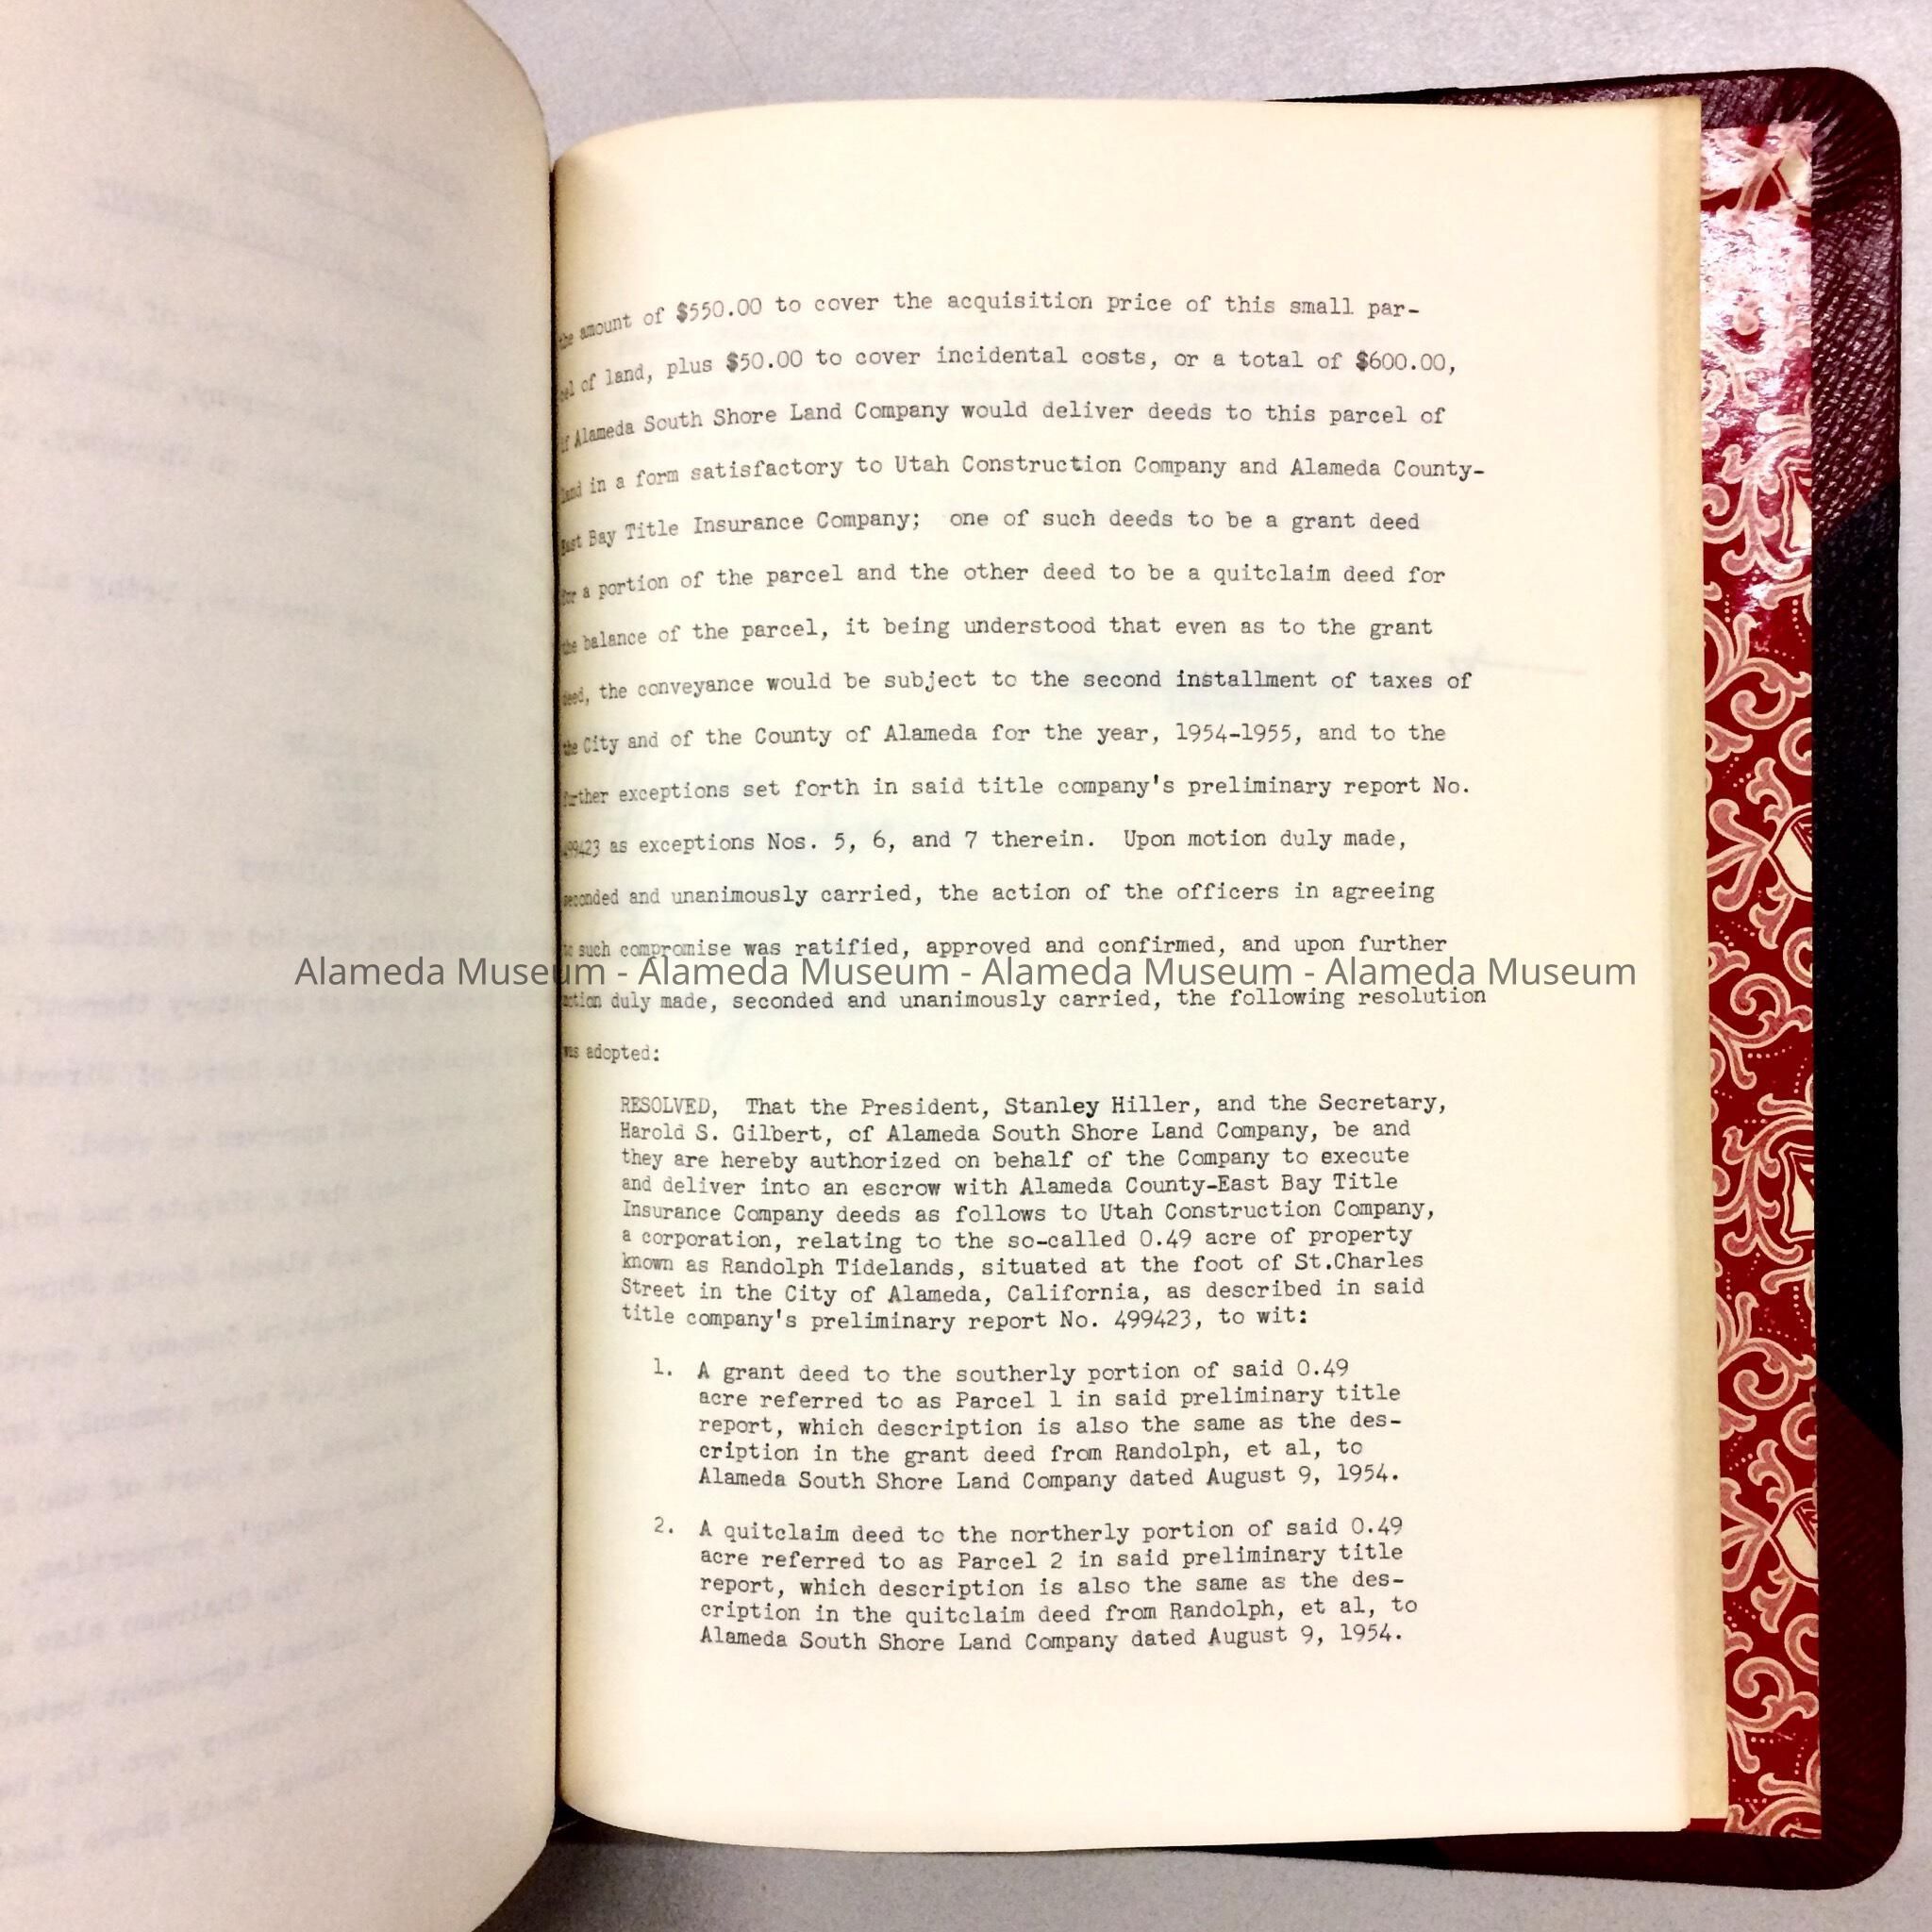 the amount of $550.00 to cover the acquisition price of this small par-
cel of land, plus $50.00 to cover incidental costs, or a total of $600.00,
if Alameda South Shore Land Company would deliver deeds to this parcel of
land in a form satisfactory to Utah Construction Company and Alameda County-
East Bay Title Insurance Company; one of such deeds to be a grant deed
for a portion of the parcel and the other deed to be a quitclaim deed for
the balance of the parcel, it being understood that even as to the grant
deed, the conveyance would be subject to the second installment of taxes of
the City and of the County of Alameda for the year, 1954-1955, and to the
further exceptions set forth in said title company's preliminary report No.
499423 as exceptions Nos. 5, 6, and 7 therein. Upon motion duly made,
seconded and unanimously carried, the action of the officers in agreeing
to such compromise was ratified, approved and confirmed, and upon further
Alameda Museum - Alameda Museum - Alameda Museum - Alameda Museum
motion duly made, seconded and unanimously carried, the following resolution
was adopted:
RESOLVED, That the President, Stanley Hiller, and the Secretary,
Harold S. Gilbert, of Alameda South Shore Land Company, be and
they are hereby authorized on behalf of the Company to execute
and deliver into an escrow with Alameda County-East Bay Title
Insurance Company deeds as follows to Utah Construction Company,
a corporation, relating to the so-called 0.49 acre of property
known as Randolph Tidelands, situated at the foot of St.Charles
Street in the City of Alameda, California, as described in said
title company's preliminary report No. 499423, to wit:
1. A grant deed to the southerly portion of said 0.49
acre referred to as Parcel 1 in said preliminary title
report, which description is also the same as the des-
cription in the grant deed from Randolph, et al, to
Alameda South Shore Land Company dated August 9, 1954.
2. A quitclaim deed to the northerly portion of said 0.49
acre referred to as Parcel 2 in said preliminary title
report, which description is also the same as the des-
cription in the quitclaim deed from Randolph, et al, to
Alameda South Shore Land Company dated August 9, 1954.